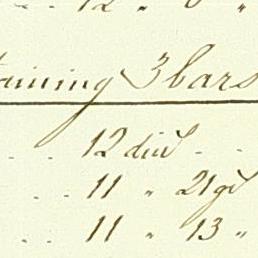 12 " 0 "
taining 3 bars
12 died
11 " 21
11 " 13 "